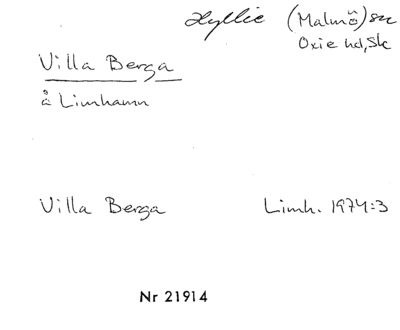 Hyllie (Malmö) sn
Oxie hd, Sk
Villa Berga
å Limhamn
Villa Berga Limh. 1974:3
Nr 21914